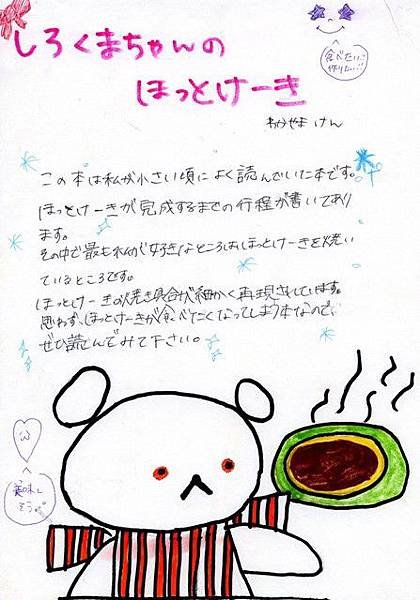 しろくまちゃんの
ほっとけーき
わかやま けん
食べたい!
作りたい!!
この本は私が小さい頃によく読んでいた本です。
ほっとけーきが完成するまでの行程が書いてあり
ます。
その中で最も私が好きなところはほっとけーきを焼い
ているところです。
ほっとけーきの焼き具合が細かく再現されています。
思わず、ほっとけーきが食べたくなってしまう本なので、
ぜひ読んでみて下さい。
美味し
そう